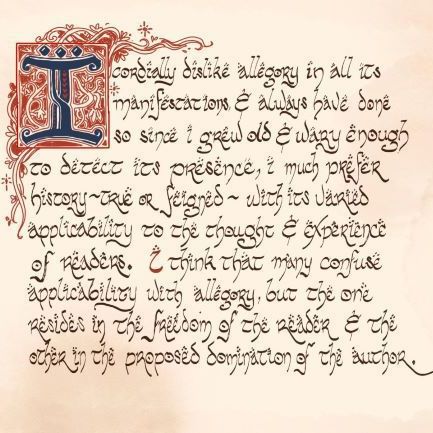 I cordially dislike allegory in all its
manifestations, & always have done
so since i grew old & wary enough
to detect its presence, i much prefer
history~true or feigned~ with its varied
applicability to the thought & experience
of readers. I think that many confuse
applicability with allegory, but the one
resides in the freedom of the reader & the
other in the proposed domination of the author.